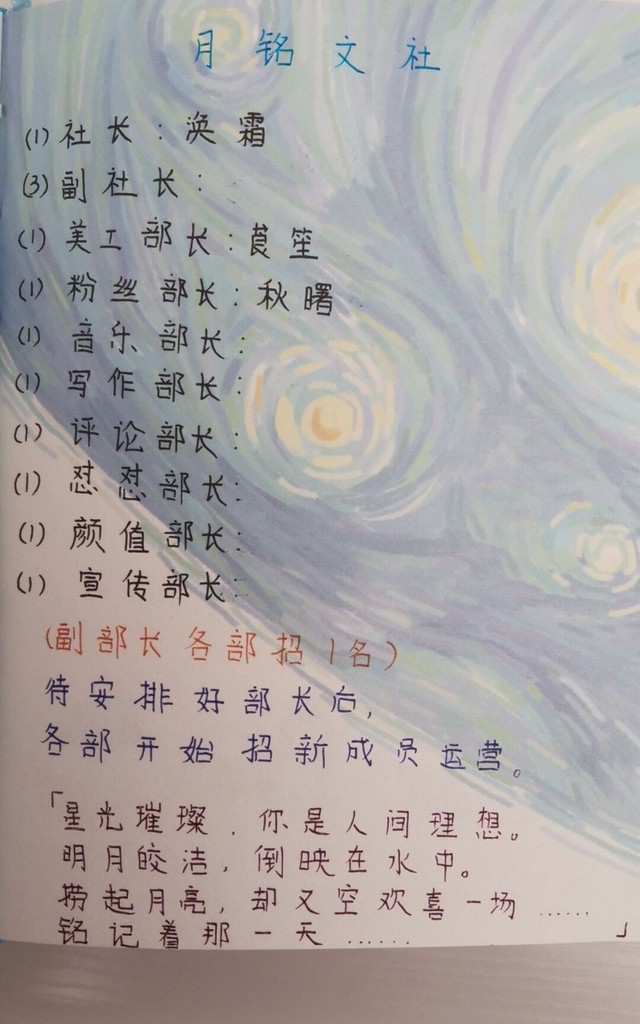 月铭文社
(1)社长:涣霜
(3)副社长:
(1)美工部长:莨笙
(1)粉丝部长:秋曙
(1)音乐部长:
(1)写作部长:
(1)评论部长:
(1)怼怼部长:
(1)颜值部长:
(1)宣传部长:
(副部长各部招1名)
待安排好部长后,
各部开始招新成员运营。
「星光璀璨,你是人间理想。
明月皎洁,倒映在水中。
捞起月亮,却又空欢喜一场……
铭记着那一天……」